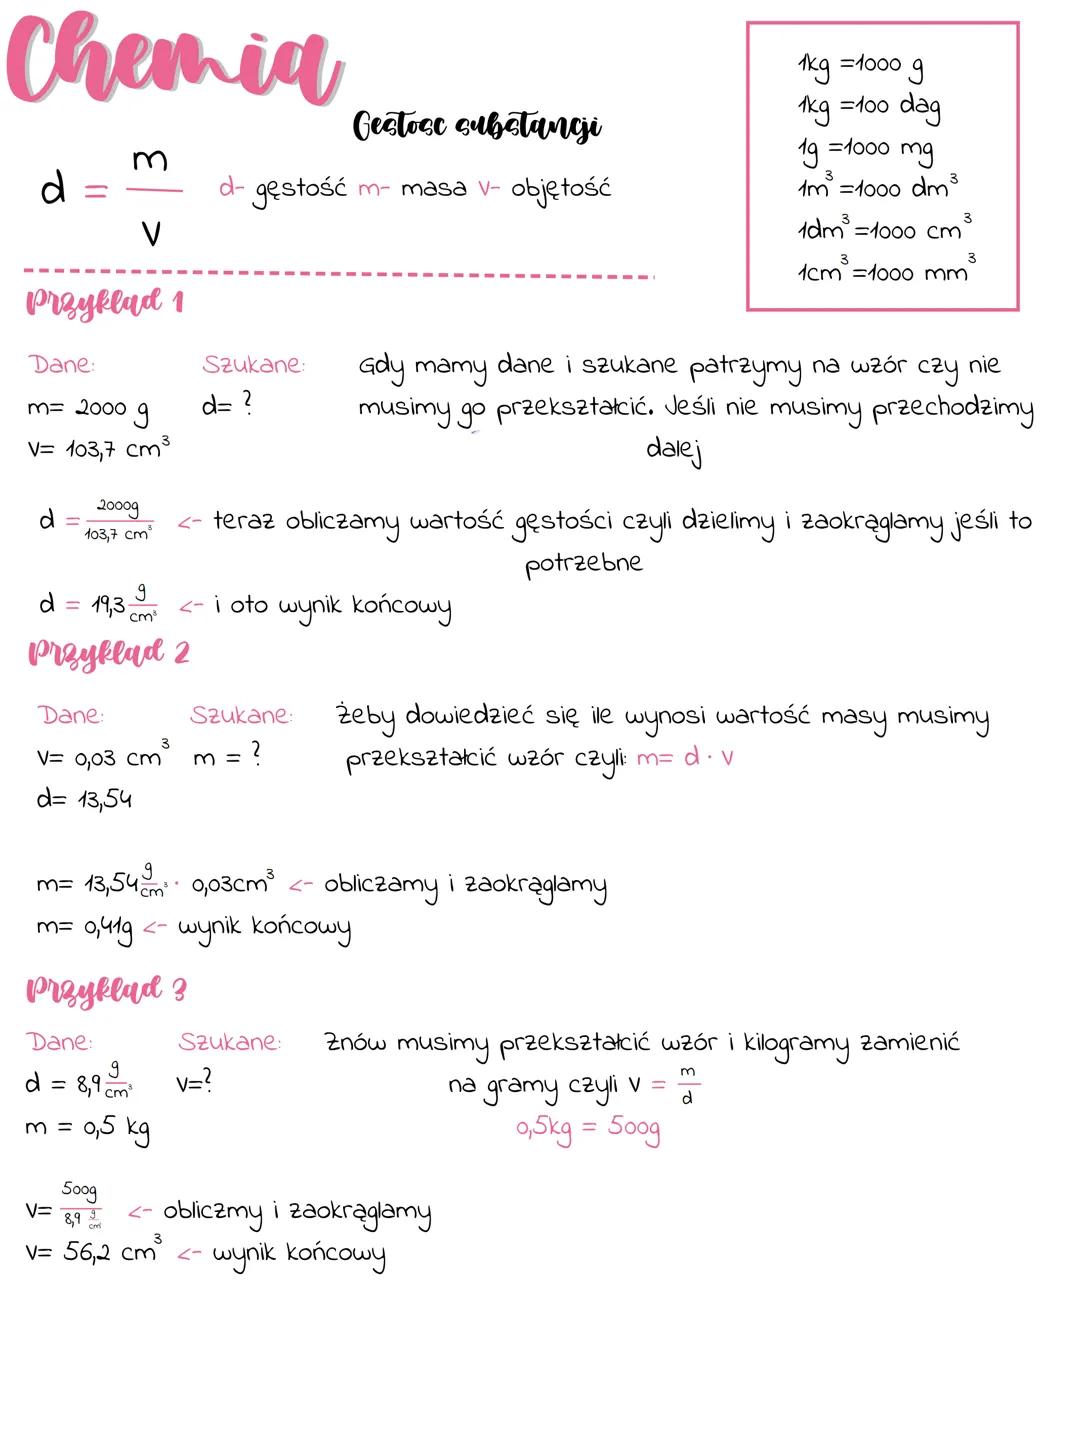 Chemia
Gęstosc substancji
d = m/V
d- gęstość m- masa V- objętość
1kg =1000 g
1kg =100 dag
1g =1000 mg
1m³ =1000 dm³
1dm³ =1000 cm³
1cm³ =1000 mm³
Przykład 1
Dane: Szukane:
m= 2000 g d= ?
V= 103,7 cm³
Gdy mamy dane i szukane patrzymy na wzór czy nie
musimy go przekształcić. Jeśli nie musimy przechodzimy
dalej
d = 2000g/103,7 cm³ <- teraz obliczamy wartość gęstości czyli dzielimy i zaokrąglamy jeśli to
potrzebne
d = 19,3 g/cm³ <- i oto wynik końcowy
Przykład 2
Dane: Szukane:
V= 0,03 cm³ m = ?
d= 13,54
żeby dowiedzieć się ile wynosi wartość masy musimy
przekształcić wzór czyli: m= d · V
m= 13,54 g/cm³ · 0,03cm³ <- obliczamy i zaokrąglamy
m= 0,41g <- wynik końcowy
Przykład 3
Dane: Szukane:
d = 8,9 g/cm³ V=?
m = 0,5 kg
Znów musimy przekształcić wzór i kilogramy zamienić
na gramy czyli V = m/d
0,5kg = 500g
V= 500g/8,9 g/cm³ <- obliczmy i zaokrąglamy
V= 56,2 cm³ <- wynik końcowy